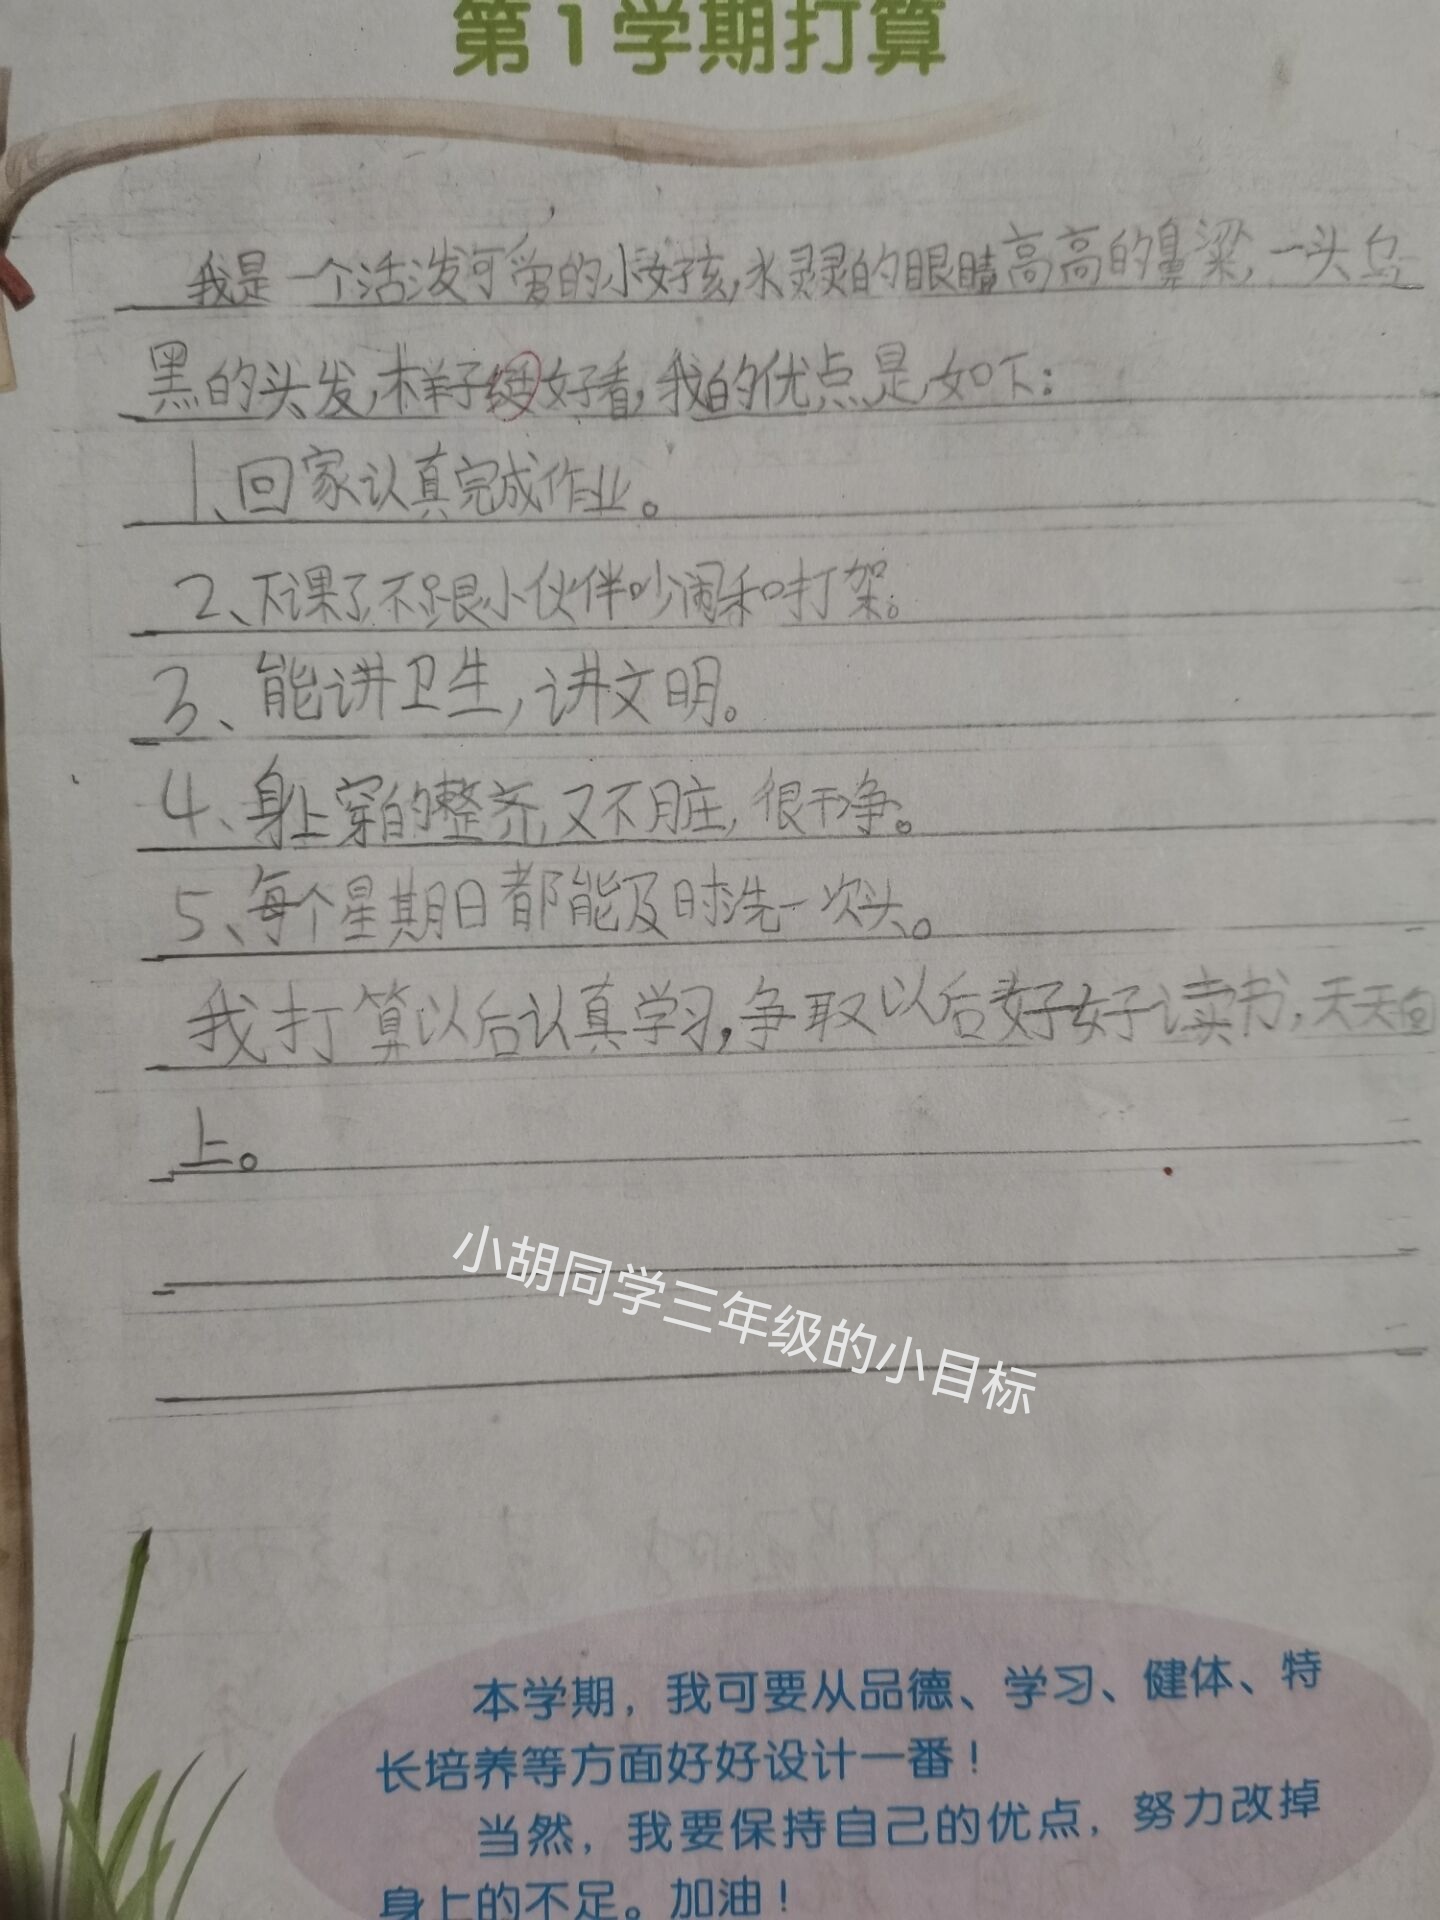 第1学期打算
我是一个活泼可爱的小女孩,水灵灵的眼睛高高的鼻梁,一头乌
黑的头发,样子 好看,我的优点是如下:
1、回家认真完成作业。
2、下课了不跟小伙伴吵闹和打架。
3、能讲卫生,讲文明。
4、身上穿的整齐,又不脏,很干净。
5、每个星期日都能及时洗一次头。
我打算以后认真学习,争取以后好好读书,天天向
上。
小胡同学三年级的小目标
本学期，我可要从品德、学习、健体、特
长培养等方面好好设计一番！
当然，我要保持自己的优点，努力改掉
身上的不足。加油！